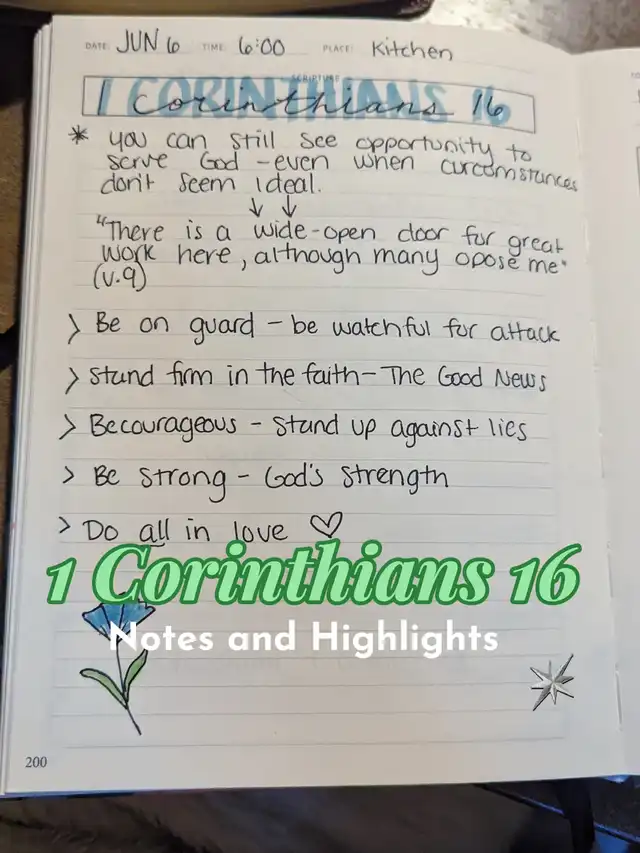 DATE: JUN 6 TIME: 6:00 PLACE: Kitchen
SCRIPTURE
1 CORINTHIANS 16
1 Corinthians 16
* you can still see opportunity to
serve God - even when circumstances
don't seem ideal.
"There is a wide-open door for great
work here, although many opose me"
(v.9)
> Be on guard - be watchful for attack
> Stand firm in the faith - The Good News
> Be courageous - Stand up against lies
> Be strong - God's strength
> Do all in love ♡
1 Corinthians 16
Notes and Highlights
200